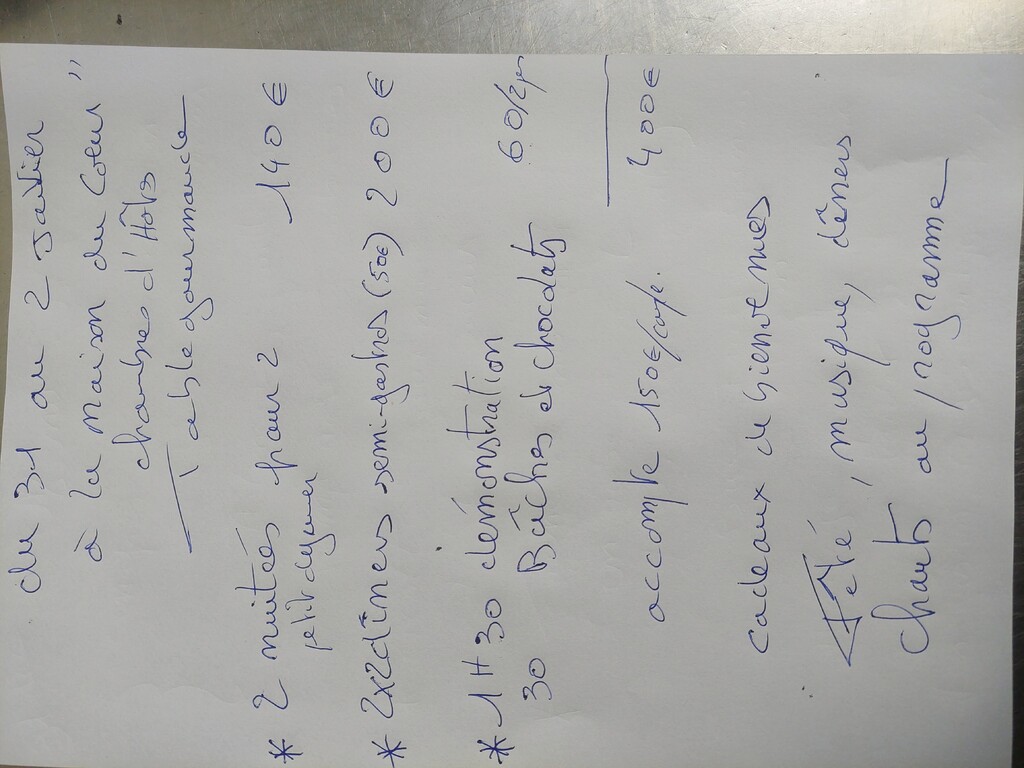 du 31 au 2 Janvier
à la maison du Coeur"
chambres d'Hôts
Table gourmande
* 2 nuités pour 2 140 €
petit dejeuner
* 2x2dîners semi-gastros (50€) 200 €
* 1H30 démonstration 60/2prs
30 Bûches et chocolats
400€
accompte 150€/cople.
cadeaux de bienvenues
Fété, musique, dîners
chants au programme